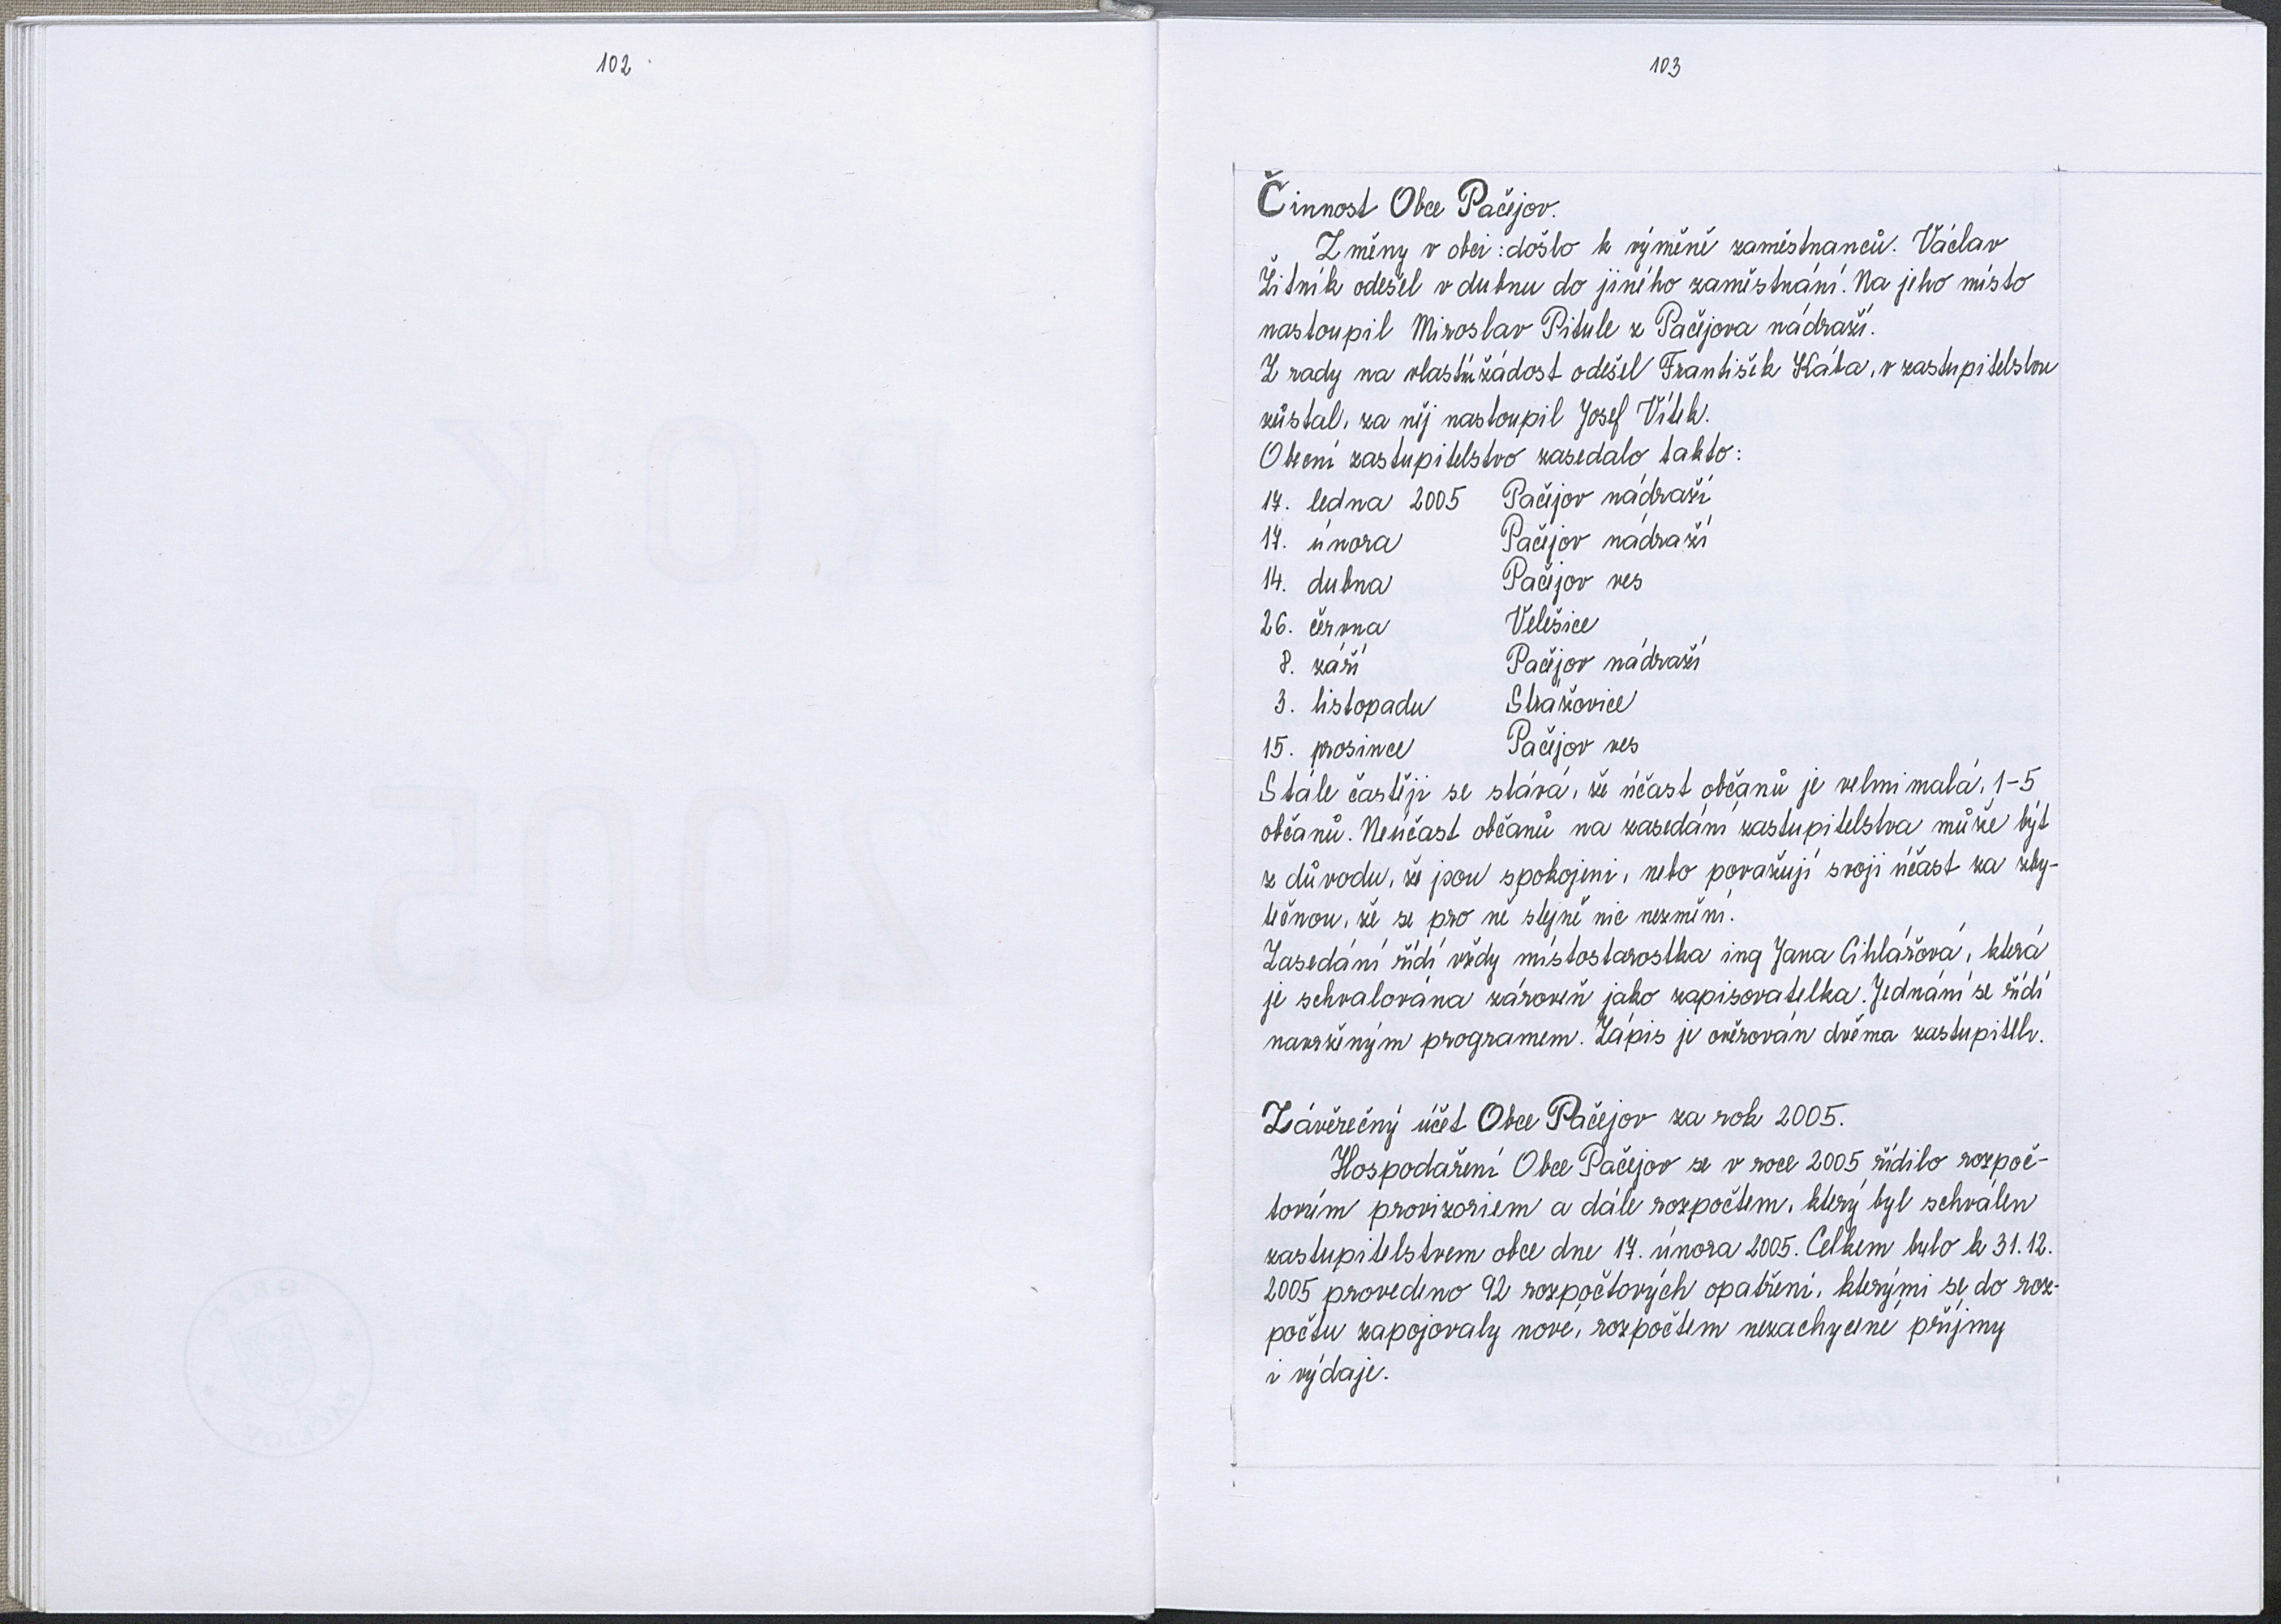 102
103
Činnost Obce Pačejov.
Změny v obci: došlo k výměně zaměstnanců. Václav
Žitník odešel v dubnu do jiného zaměstnání. Na jeho místo
nastoupil Miroslav Pitule z Pačejova nádraží.
Z rady na vlastní žádost odešel František Kába, v zastupitelstvu
zůstal, za něj nastoupil Josef Vítek.
Obecní zastupitelstvo zasedalo takto:
17. ledna 2005 Pačejov nádraží
17. února Pačejov nádraží
14. dubna Pačejov ves
26. června Velešice
8. září Pačejov nádraží
3. listopadu Strážovice
15. prosince Pačejov ves
Stále častěji se stává, že účast občanů je velmi malá, 1-5
občanů. Neúčast občanů na zasedání zastupitelstva může být
z důvodu, že jsou spokojeni, nebo považují svoji účast za zby-
tečnou, že se pro ně stejně nic nezmění.
Zasedání řídí vždy místostarostka ing Jana Cihlářová, která
je schvalována zároveň jako zapisovatelka. Jednání se řídí
navrženým programem. Zápis je ověřován dvěma zastupiteli.
Závěrečný účet Obce Pačejov za rok 2005.
Hospodaření Obce Pačejov se v roce 2005 řídilo rozpoč-
tovým provizoriem a dále rozpočtem, který byl schválen
zastupitelstvem obce dne 17. února 2005. Celkem bylo k 31.12.
2005 provedeno 92 rozpočtových opatření, kterými se do roz-
počtu zapojovaly nové, rozpočtem nezachycené příjmy
i výdaje.